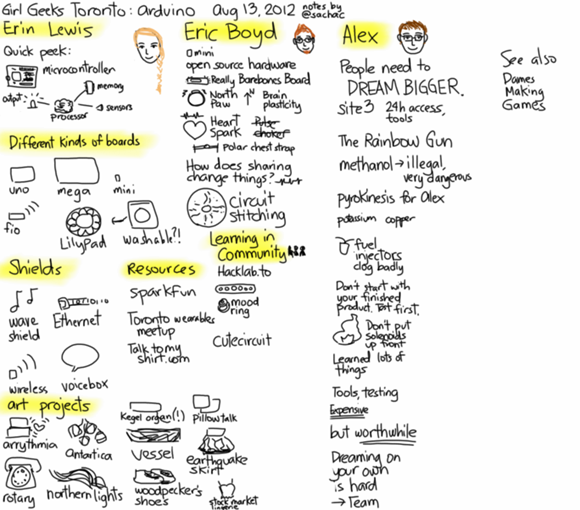 Girl Geeks Toronto: arduino Aug 13, 2012 notes by
@sachac
Erin Lewis
Quick peek:
microcontroller
memory
output
processor
sensors
Different kinds of boards
uno
mega
mini
fio
LilyPad
washable?!
Shields
wave
shield
Ethernet
wireless
voicebox
Resources
sparkfun
Toronto wearables
meetup
Talk to my
shirt.com
art projects
arrythmia
Antartica
Kegel organ(!)
Pillowtalk
vessel
earthquake
skirt
rotary
northern lights
woodpecker's
shoes
stock market
lingerie
Eric Boyd
mini
open source hardware
Really Barebones Board
North
Paw
Brain
plasticity
Heart
Spark
Pulse
choker
Polar chest strap
How does sharing
change things?
circuit
stitching
Learning in
Community
Hacklab.to
mood
ring
Cutecircuit
Alex
People need to
DREAM BIGGER.
site3 24h access,
tools
The Rainbow Gun
methanol → illegal,
very dangerous
pyrokinesis for Alex
potassium copper
fuel
injectors
clog badly
Don't start with
your finished
product. Test first.
Don't put
solenoids
up front
Learned lots of
things
Tools, testing
Expensive
but worthwhile
Dreaming on
your own
is hard
→ Team
See also
Dames
Making
Games